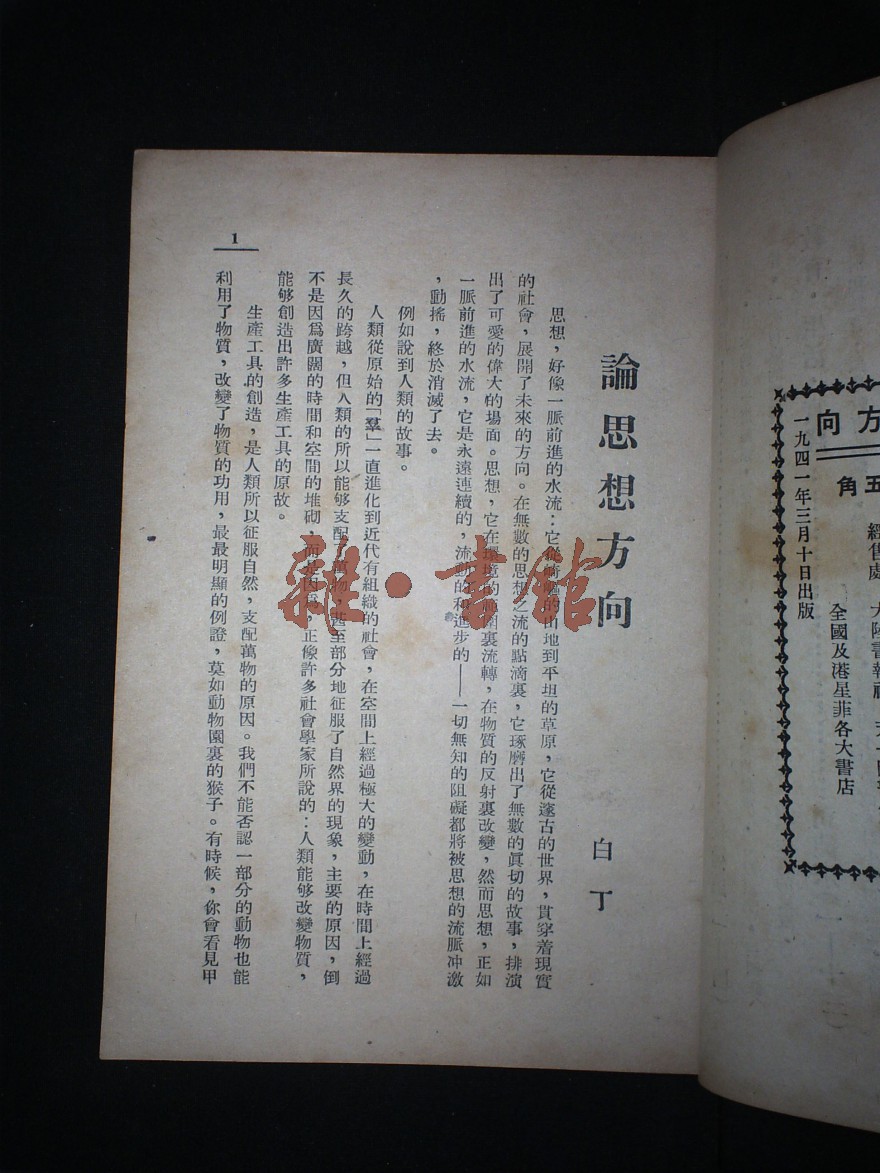 方向
五角
經售處 大陸書報社
全國及港星菲各大書店
一九四一年三月十日出版
論思想方向
白丁
思想，好像一脈前進的水流：它從崎嶇的山地到平坦的草原，它從邃古的世界，貫穿着現實
的社會，展開了未來的方向。在無數的思想之流的點滴裏，它琢磨出了無數的眞切的故事，排演
出了可愛的偉大的場面。思想，它在環境的範圍裏流轉，在物質的反射裏改變，然而思想，正如
一脈前進的水流，它是永遠連續的，流動的和進步的——一切無知的阻礙都將被思想的流脈冲激
，動搖，終於消滅了去。
例如說到人類的故事。
人類從原始的「羣」一直進化到近代有組織的社會，在空間上經過極大的變動，在時間上經過
長久的跨越，但人類的所以能够支配了萬物，甚至部分地征服了自然界的現象，主要的原因，倒
不是因爲廣闊的時間和空間的堆砌，而是因爲，正像許多社會學家所說的：人類能够改變物質，
能够創造出許多生產工具的原故。
生產工具的創造，是人類所以征服自然，支配萬物的原因。我們不能否認一部分的動物也能
利用了物質，改變了物質的功用，最最明顯的例證，莫如動物園裏的猴子。有時候，你會看見甲
1
雜·書館